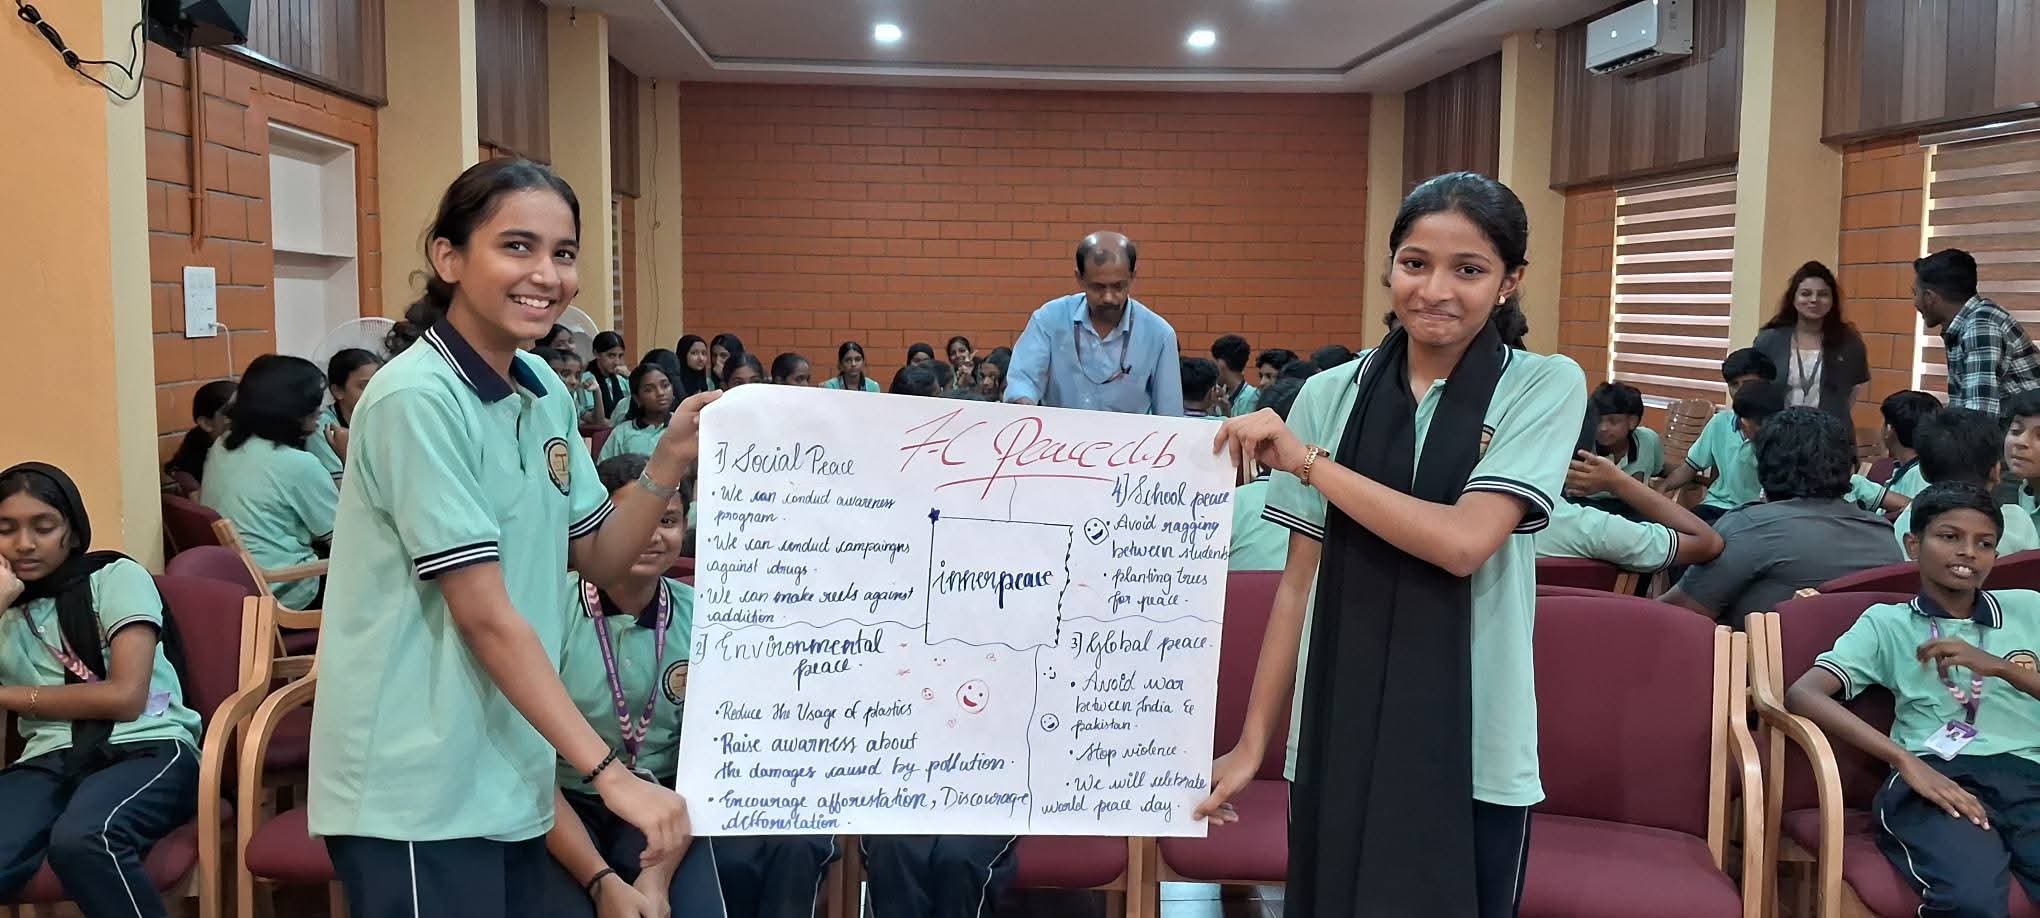 7-C Peace club
1) Social Peace
• We can conduct awareness
program.
• We can conduct campaingns
against drugs.
• We can make reels against
addiction.
2) Environmental
peace.
• Reduce the Usage of plastics
• Raise awarness about
the damages caused by pollution.
• Encourage afforestation, Discourage
defforestation.
innerpeace
4) School peace
• Avoid ragging
between students
• planting trees
for peace.
3) Global peace.
• Avoid war
between India &
pakistan.
• Stop violence.
• We will celebrate
world peace day.